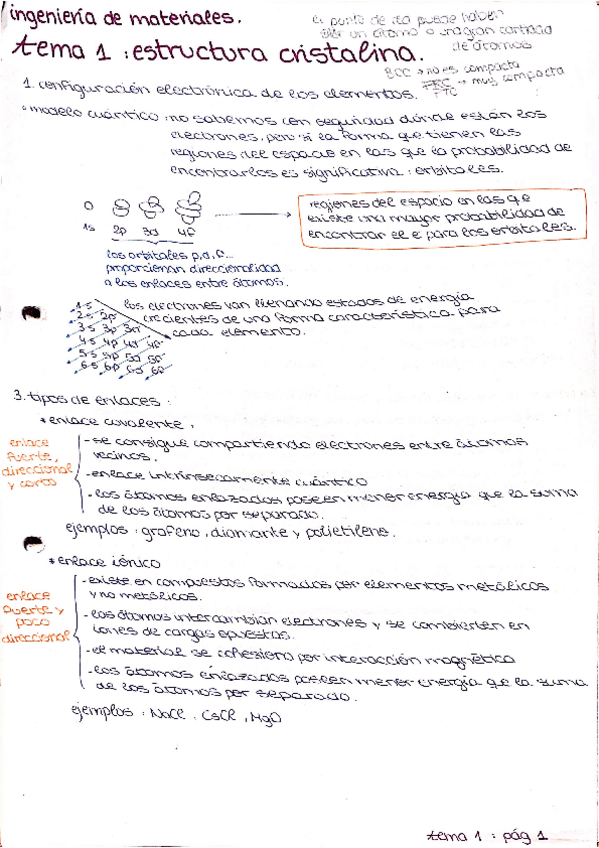 ingeniería de materiales.
el punto de red puede haber
un átomo o una gran cantidad
de átomos
tema 1 : estructura cristalina.
BCC → no es compacta
FCC → muy compacta
1. configuración electrónica de los elementos.
• modelo cuántico : no sabemos con seguridad dónde están los
electrones, pero sí la forma que tienen las
regiones del espacio en las que la probabilidad de
encontrarlos es significativa : orbitales.
regiones del espacio en las q e
existe una mayor probabilidad de
encontrar el e para los orbitales.
1s 2p 3d 4f
los orbitales p,d,f...
proporcionan direccionalidad
a los enlaces entre átomos.
1s
2s 2p
3s 3p 3d
4s 4p 4d 4f
5s 5p 5d 5f
6s 6p 6d 6f
los electrones van llenando estados de energía
crecientes de una forma característica para
cada elemento.
3. tipos de enlaces :
* enlace covalente :
enlace
fuerte,
direccional
y corto
- se consigue compartiendo electrones entre átomos
vecinos.
- enlace intrínsecamente cuántico
- los átomos enlazados poseen menor energía que la suma
de los átomos por separado.
ejemplos : grafeno, diamante y polietileno.
* enlace iónico
enlace
fuerte y
poco
direccional
- existe en compuestos formados por elementos metálicos
y no metálicos.
- los átomos intercambian electrones y se convierten en
iones de cargas opuestas.
- el material se cohesiona por interacción magnética
- los átomos enlazados poseen menor energía que la suma
de los átomos por separado.
ejemplos : NaCl, CsCl, MgO
tema 1 : pág 1